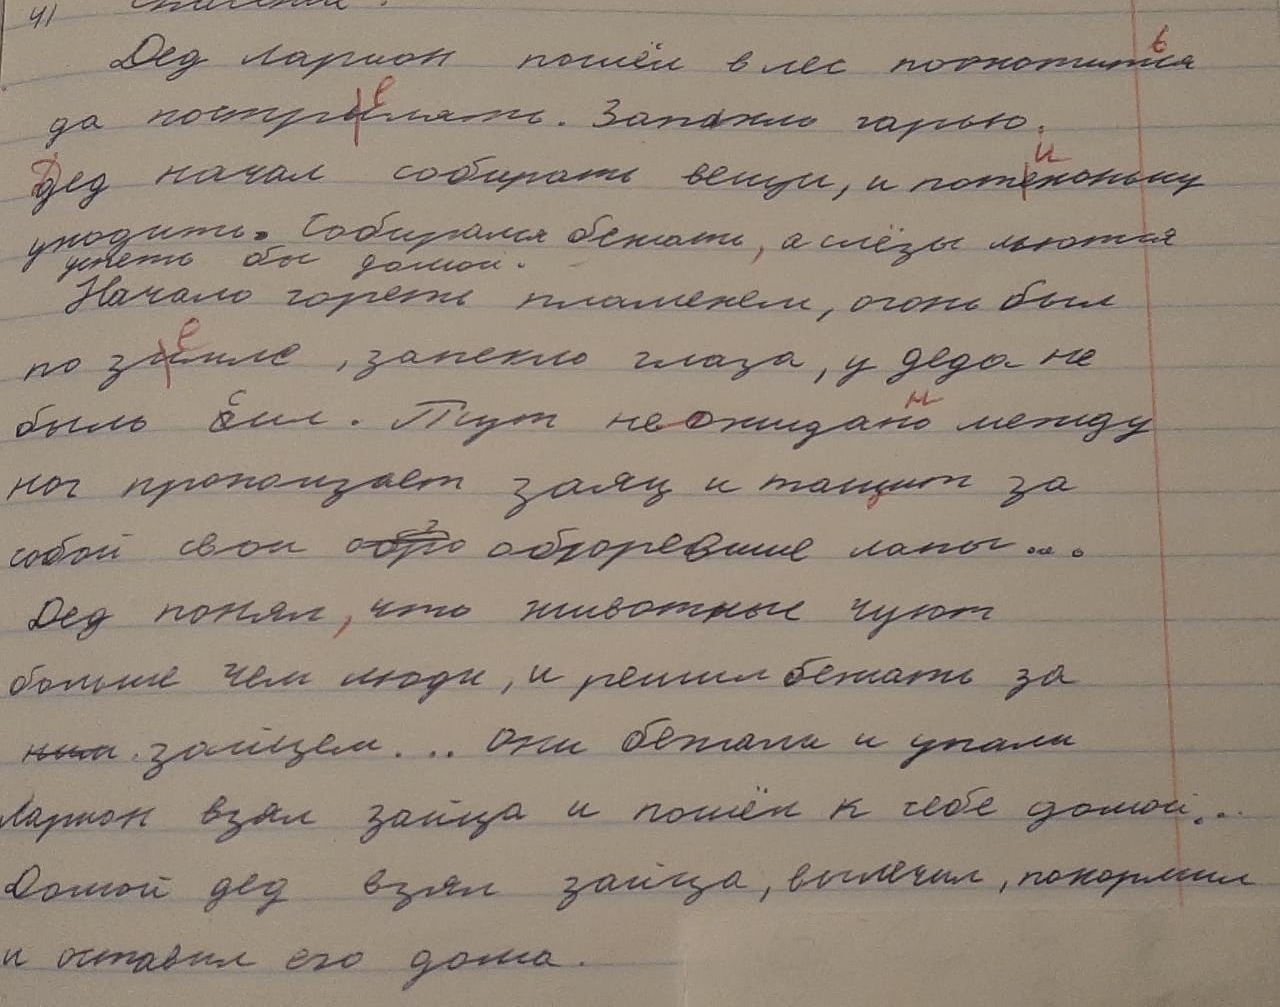 Дед Ларион пошёл в лес поохотится
ь
да пострилять. Запахло гарью.
е
Дед начал собирать вещи, и потехоньку
и
уходить. Собирался бежать, а слёзы льются
успеть бы домой.
Начало гореть пламенем, огонь был
по зимле, запекло глаза, у деда не
е
быль сил. Тут не ожидано между
н
ног проползает заяц и тащит за
собой свои обгоревшие лапы...
Дед понял, что животные чуют
больше чем люди, и решил бежать за
ним зайцем... Они бежали и упали
Ларион взял зайца и пошёл к себе домой...
Домой дед взял зайца, вылечил, покормил
и оставил его дома.